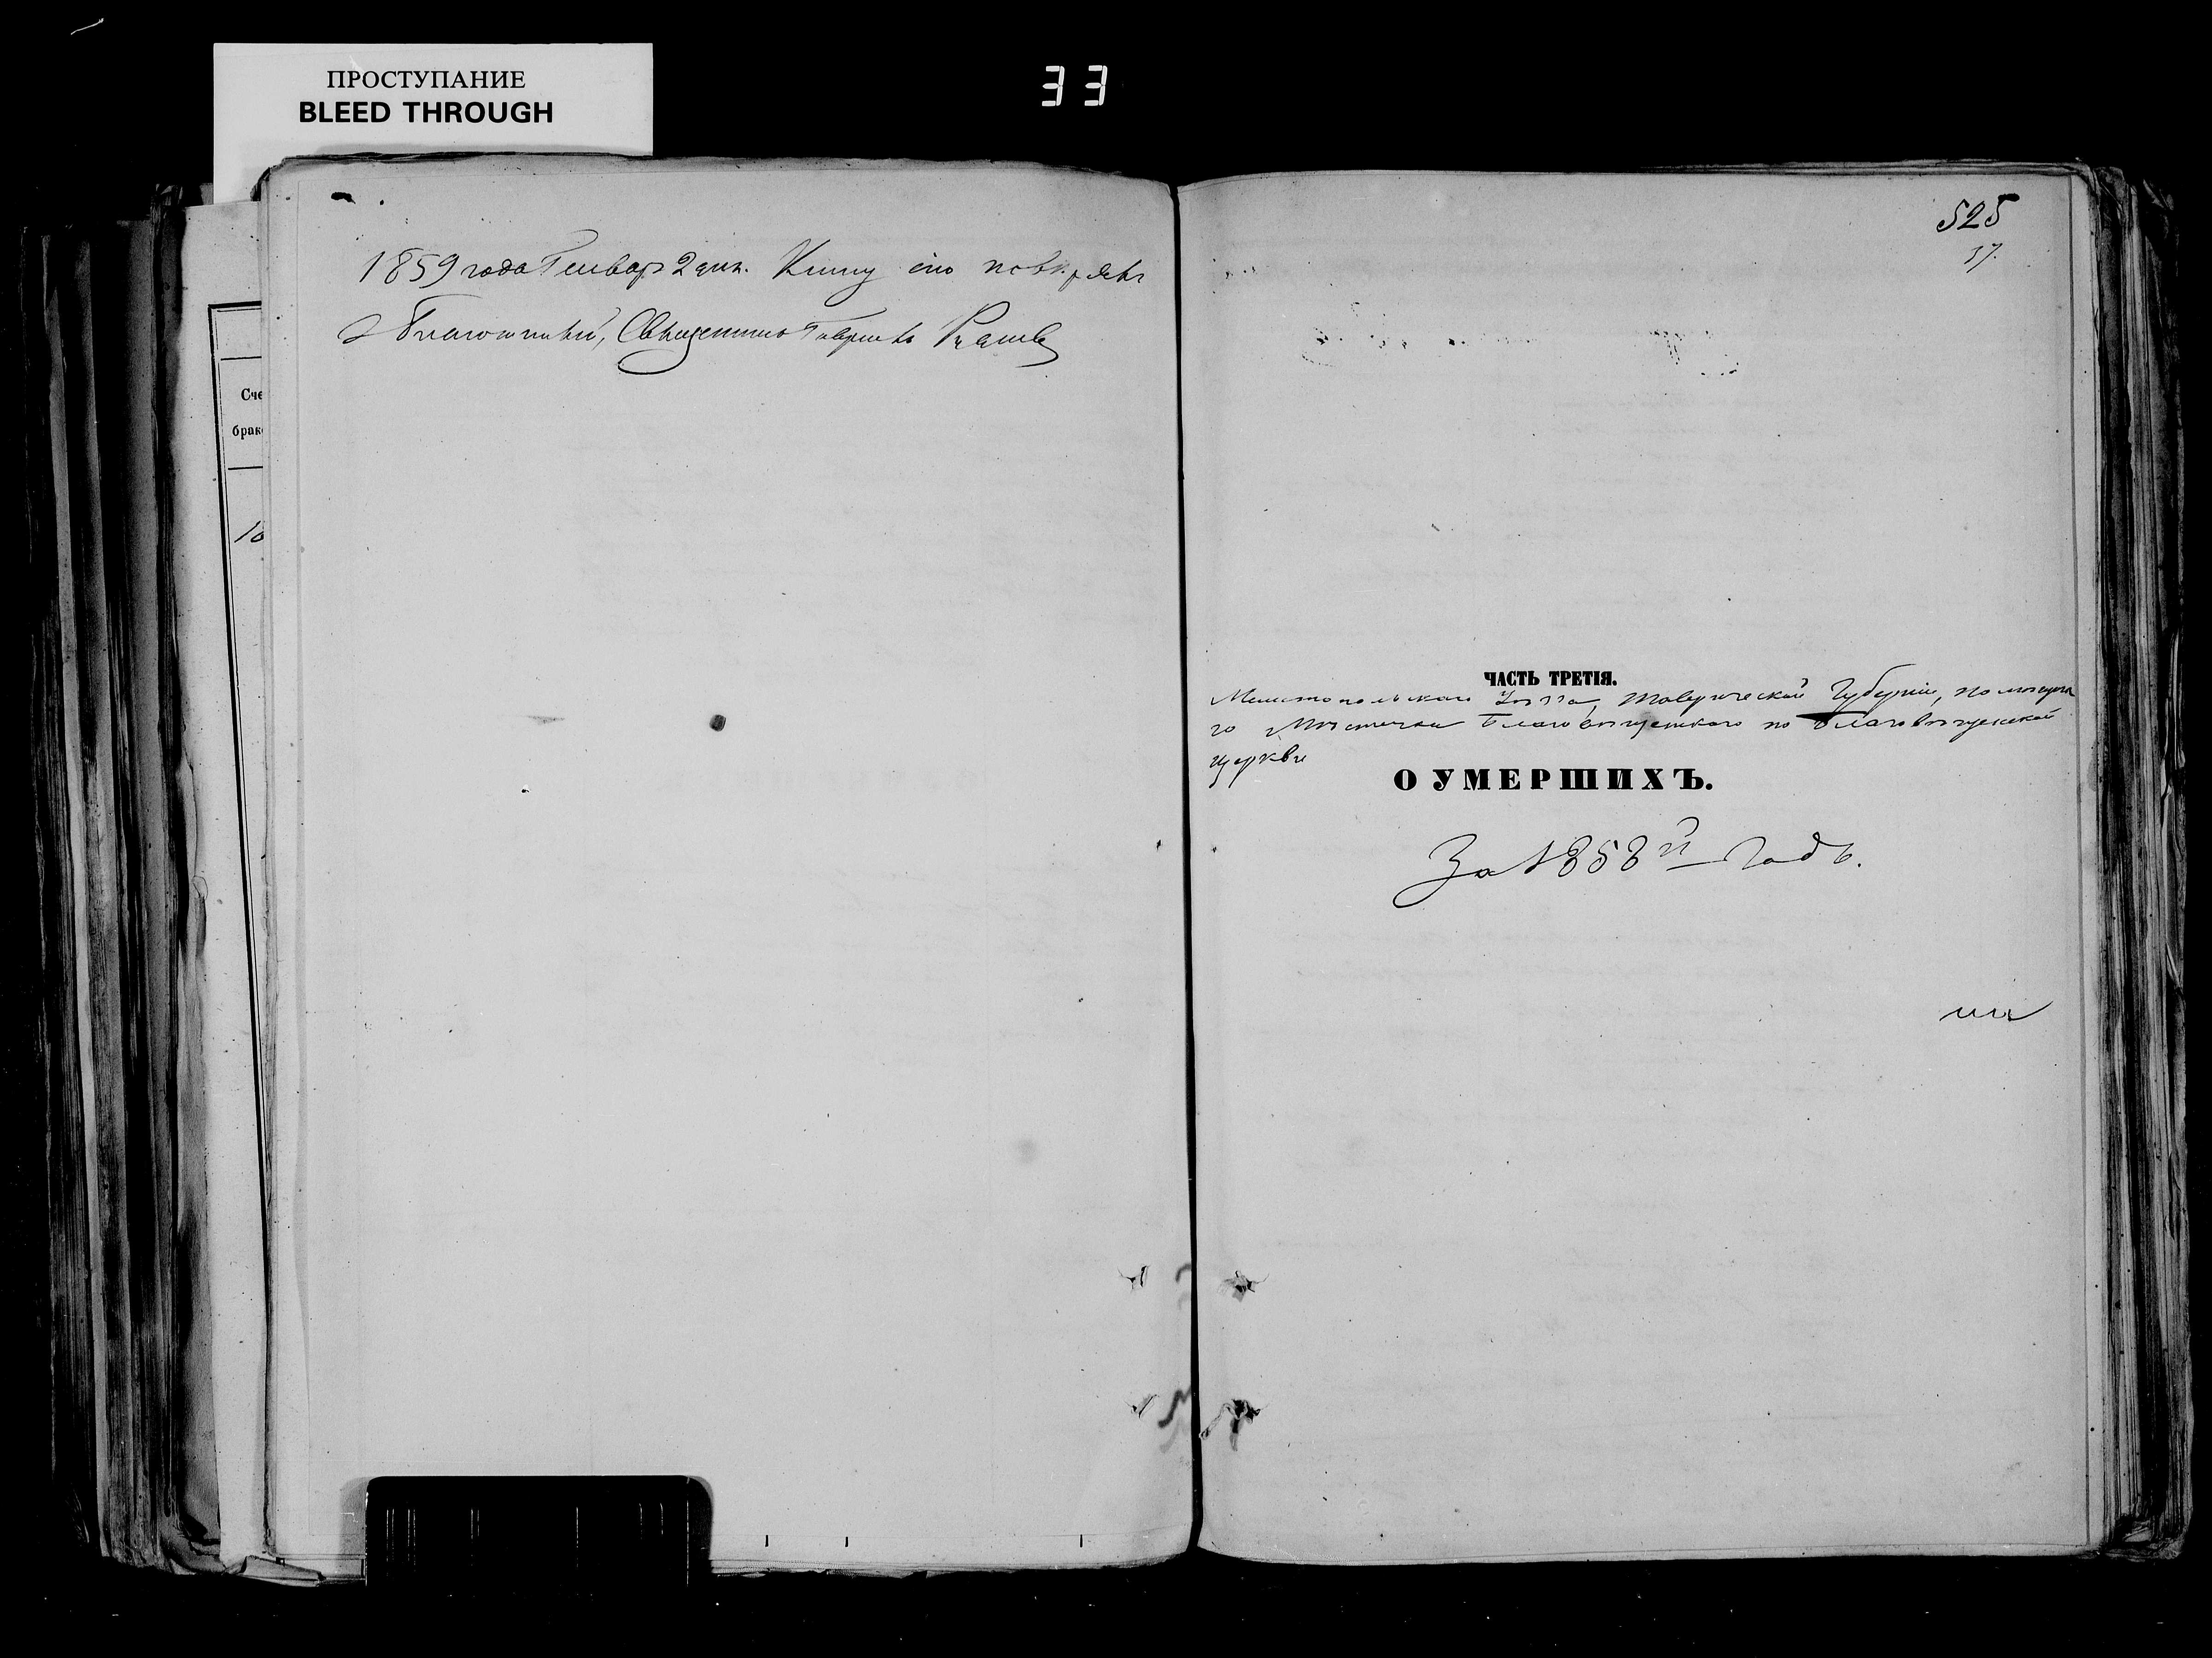 ПРОСТУПАНИЕ
BLEED THROUGH
33
1859 года Генвар 2 дня. Книгу сію повѣрялъ
Благочинный, Священникъ Гавріилъ
Сче
брак
10
525
37.
ЧАСТЬ ТРЕТІЯ.
Мелитопольскаго Уѣзда, Таврической Губерніи,
го Мѣстечка Благовѣщенскаго по Благовѣщенской
церкви
О УМЕРШИХЪ.
За 1858й Годъ.